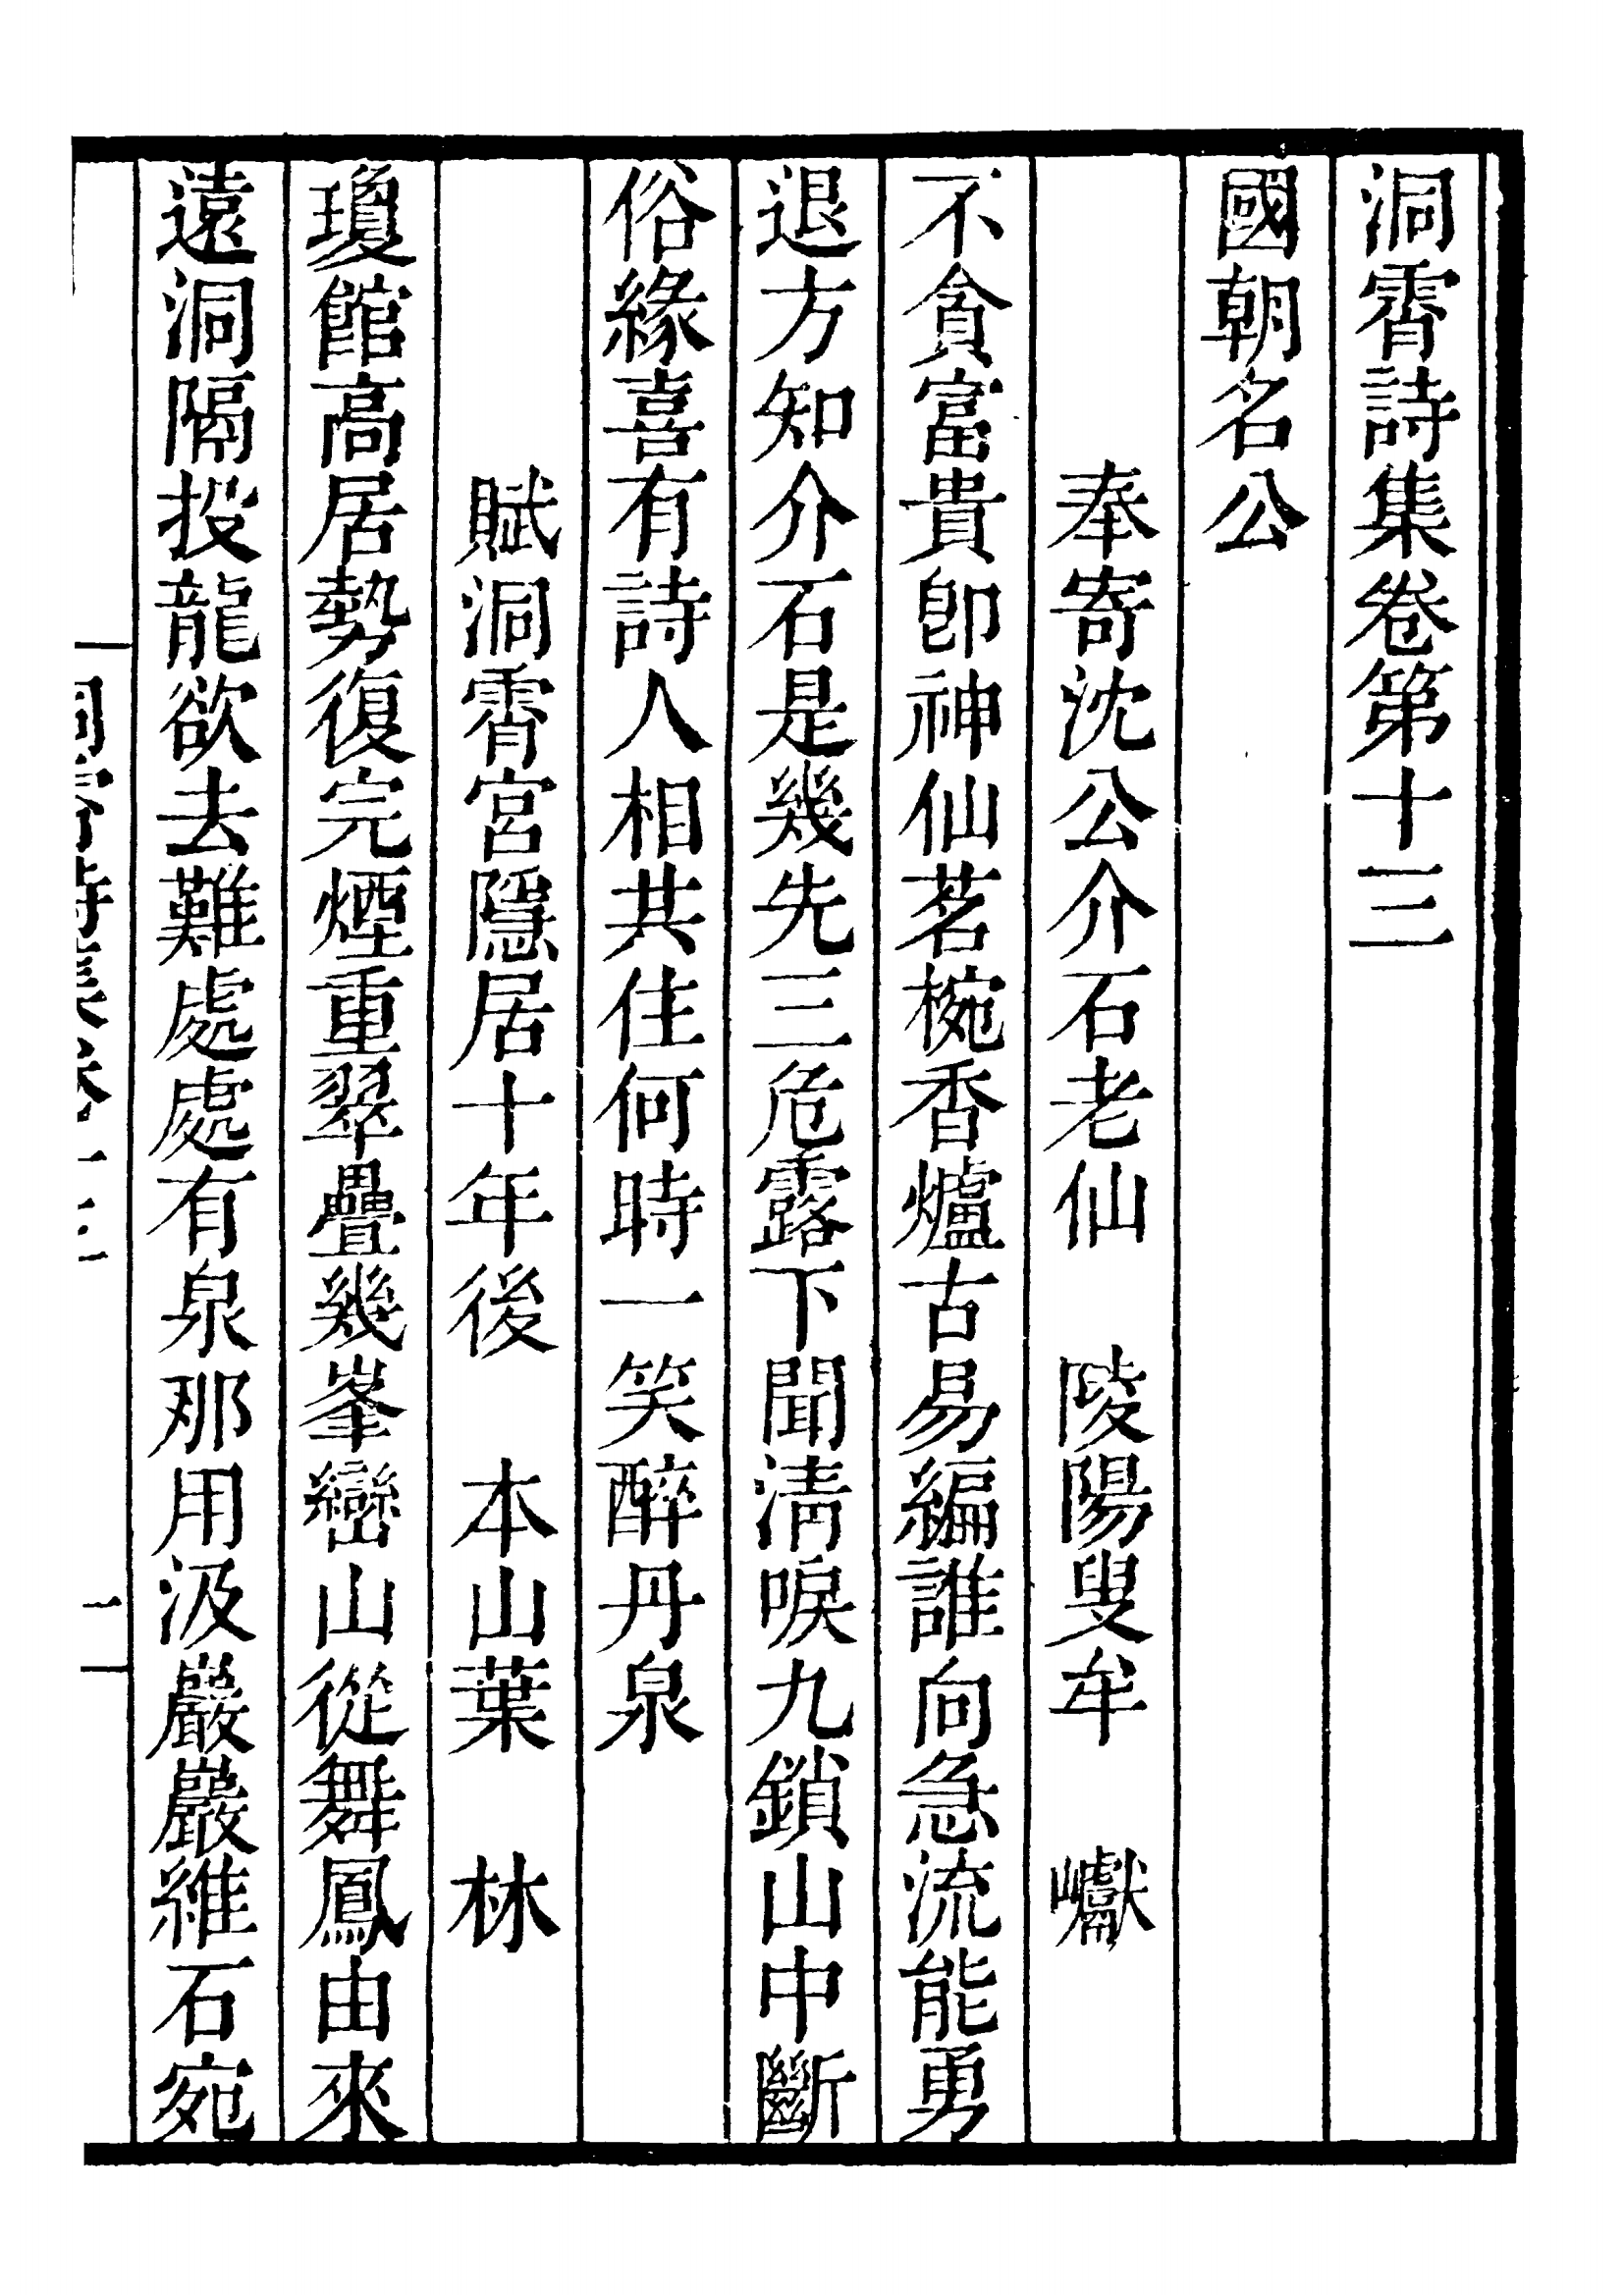 洞霄詩集卷第十三
國朝名公
奉寄沈公介石老仙　陵陽叟牟　巘
不貪富貴卽神仙茗椀香爐古易編誰向急流能勇
退方知介石是幾先三危露下聞淸唳九鎖山中斷
俗緣喜有詩人相共住何時一笑醉丹泉
賦洞霄宮隱居十年後　本山葉　林
瓊館高居勢復完煙重翠疊幾峯巒山從舞鳳由來
遠洞隔投龍欲去難處處有泉那用汲巖巖維石宛
洞霄詩集卷十三　一